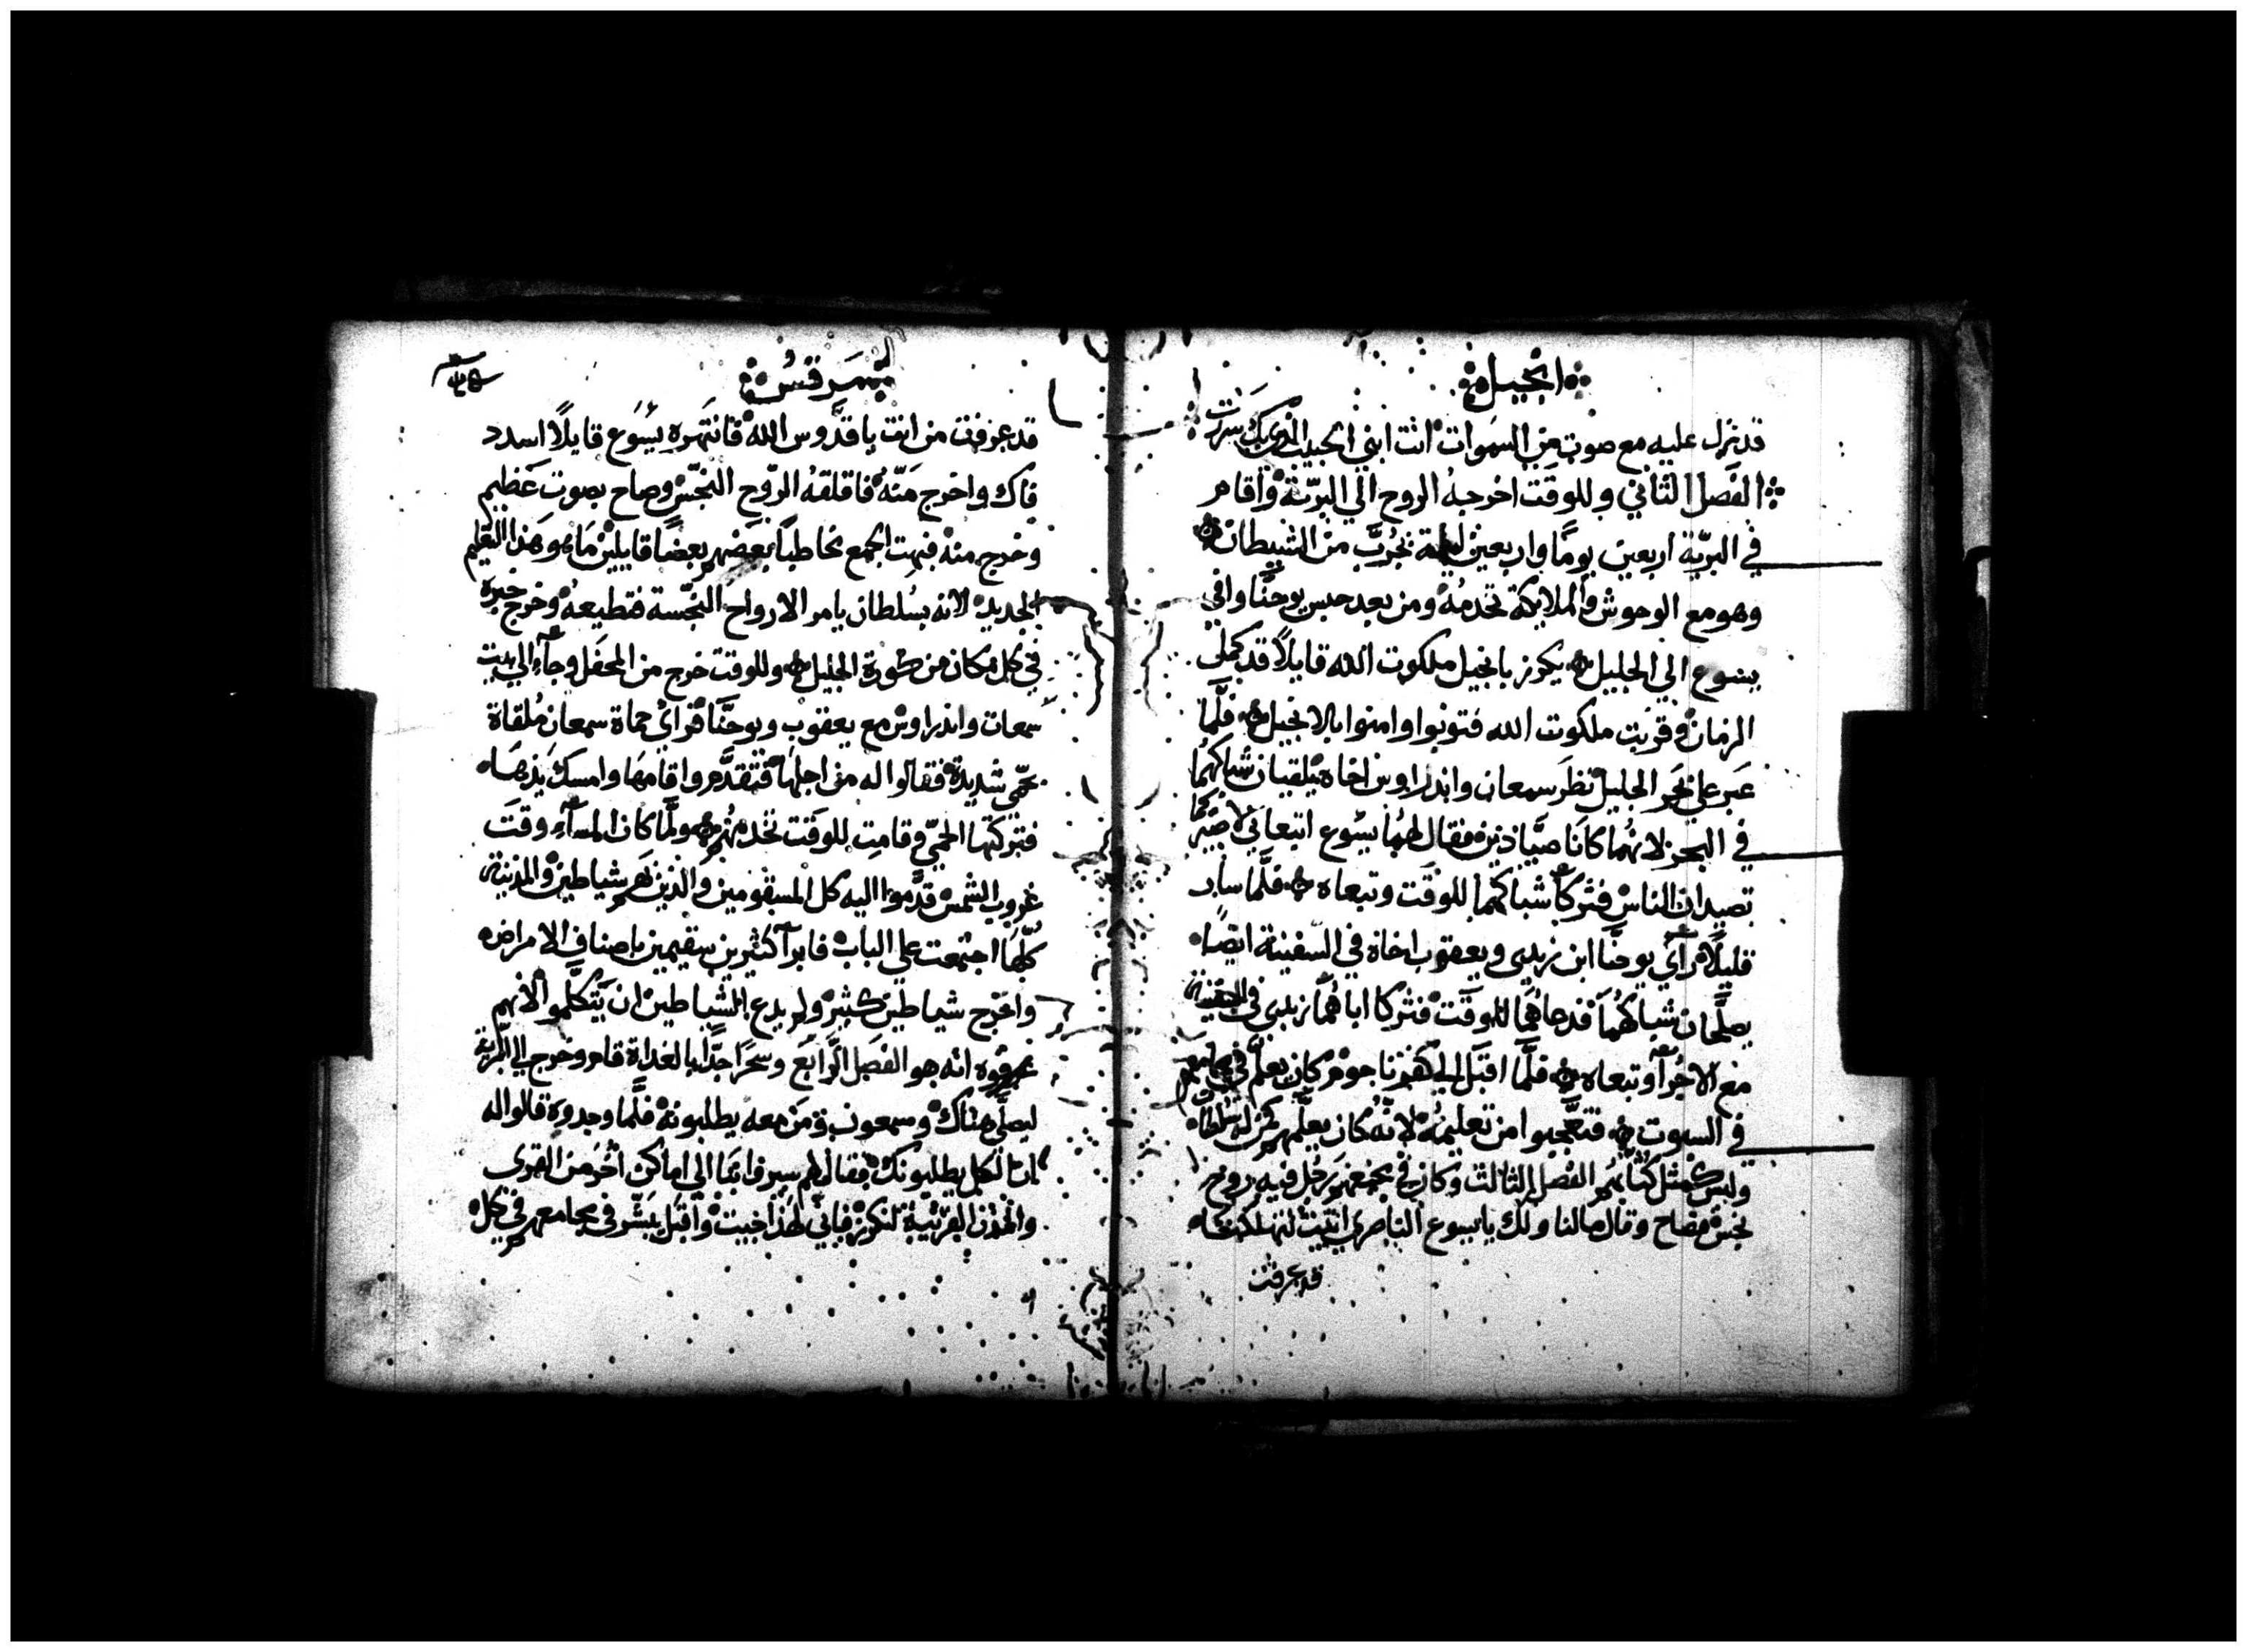 انجيل
قد نزل عليه مع صوت من السموات انت ابني الحبيب الذي بك سررت
الفصل الثاني وللوقت اخرجه الروح الي البرّية واقام
في البرّية اربعين يومًا واربعين ليلة يجُرَّب من الشيطان
وهو مع الوحوش والملايكة تخدمهُ ومن بعد حبس يوحنَّا وافي
يسوع الي الجليل يكرز بانجيل ملكوت الله قايلًا قد كمل
الزمان وقربت ملكوت الله فتوبوا وامنوا بالانجيل فلَّما
عبَر علي بَحر الجليل نظَر سمعان واندراوس اخاه يلقيان شباكهُما
في البحر لانهُما كانَا صيَّاذين فقال لهُما يسُوع اتبعاني لاصَيّركما
تصيدان الناس فتركا شباكهما للوقت وتبعاه فلَّما سار
قليلًا رآي يوحنَّا ابن زبدي ويعقوب اخاه في السّفينة ايضًا
يصلحان شباكهُمَا فدعاهُمَا للوقَت فتركا اباهُمَا زبدي في السفينة
مَع الاجُرآ وتبعاه فلَّما اقبَل الي كفرناحوم كان يعلّم في مجامعهم
في السبوت فتعجَّبوا من تعليمهُ لانّه كان يعلّمهم كمن له سُلطان
وليس كمثل كُتَّابهُم الفصل الثالث وكان في مجمعهم رجُل فيه روح
نجس فصَاح وقال مالنا ولك يا يسوع الناصري اتيت لتهلكنا
قد عرفت
لمَرقسُ
قد عرفت من انت يا قدَّوس الله فانتَهره يسُوَع قايلًا اسدد
فاك واخرج مَنّه فاقلقهُ الرّوح النجّس وصاح بصوت عَظيم
وخرج منه فبهت الجمع مخاطبًا بعَضهم بعضًا قايلين مَا هو هَذا التعليم
الجديد لانه بسُلطان يامر الارواح النجّسة فتطيعهُ وخرج خبره
في كل مكان من كورة الجليل وللوقت خرج من المحفل وجآء الي بيت
سمعان واندراوس مع يعقوب ويوحنَّا فرايُ حماة سمعان مُلقاة
بحمّي شديدة فقالوا له من اجلهَا فتقدَّم واقامهَا وامسك يدهَا
فتركتها الحمّي وقامت للوقت تخدمهُم ولَّما كان المسآء وقت
غروب الشمس قدَّموا اليه كل المسقومين والذين بهم شياطين والمدينة
كُلّهَا اجتمعت علي الباب فابرآ كثيرين سقيمين باصناف الامراض
واخرج شياطين كثيره ولم يدع الشياطين ان يَتكلَّموا لانهم
عرفوه انه هو الفصَل الرَّابَع وسحَرًا جدًّا بالغداة قام وخرج الي البّرية
ليصلّي هناك وسمعون ومَن معه يطلبونهُ فلَّما وجدوه قالوا له
ان الكل يطلبونك فقال لهم سيروا بنَا الي اماكن اخُر من القري
والمدن القرَيبة لنكرز فاني لهَذا جيت واقبل يبَشّر في مجامعهم في كل